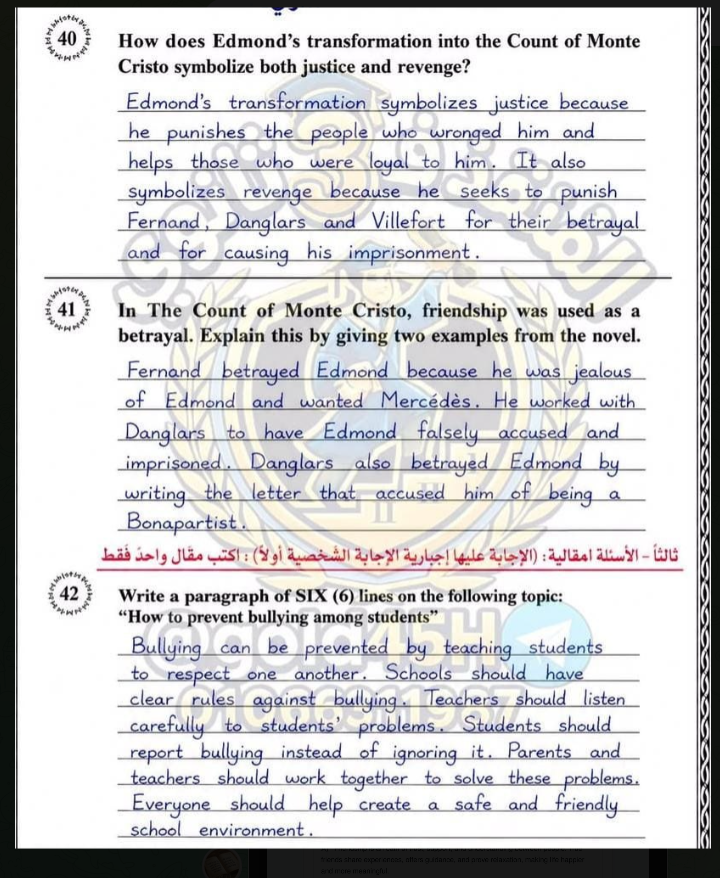 40
How does Edmond's transformation into the Count of Monte
Cristo symbolize both justice and revenge?
Edmond's transformation symbolizes justice because
he punishes the people who wronged him and
helps those who were loyal to him. It also
symbolizes revenge because he seeks to punish
Fernand, Danglars and Villefort for their betrayal
and for causing his imprisonment.
41
In The Count of Monte Cristo, friendship was used as a
betrayal. Explain this by giving two examples from the novel.
Fernand betrayed Edmond because he was jealous
of Edmond and wanted Mercédès. He worked with
Danglars to have Edmond falsely accused and
imprisoned. Danglars also betrayed Edmond by
writing the letter that accused him of being a
Bonapartist.
ثالثاً – الأسئلة المقالية: (الإجابة عليها إجبارية الإجابة الشخصية أولاً) : اكتب مقال واحد فقط
42
Write a paragraph of SIX (6) lines on the following topic:
"How to prevent bullying among students"
Bullying can be prevented by teaching students
to respect one another. Schools should have
clear rules against bullying. Teachers should listen
carefully to students' problems. Students should
report bullying instead of ignoring it. Parents and
teachers should work together to solve these problems.
Everyone should help create a safe and friendly
school environment.